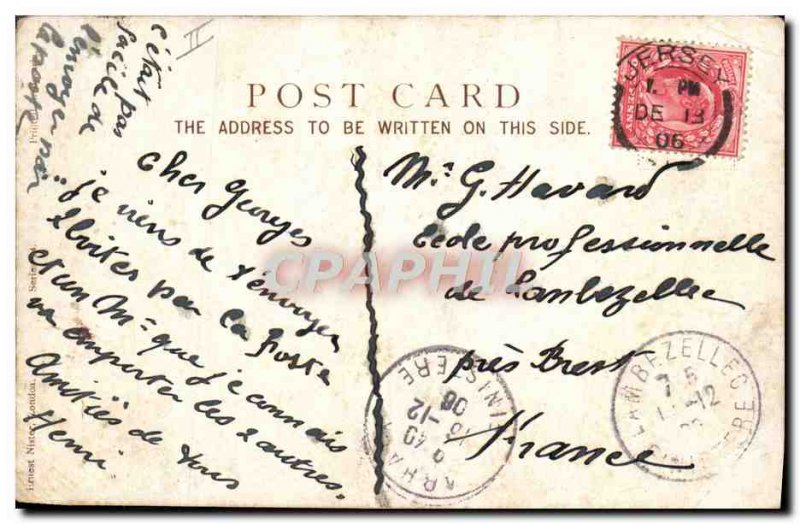 c'était pas
facile de
t'envoyer par
la poste
II
POST CARD
THE ADDRESS TO BE WRITTEN ON THIS SIDE.
JERSEY
1. PM
DE 13
06
Cher Georges
je viens de t'envoyer
2 boîtes par la poste
et un Mr que je connais
va emporter les 2 autres.
Amitiés de tous
Henri
Mr G. Havard
Ecole professionnelle
de Lambezellec
près Brest
France
CPAPHIL
FINISTERE
6 40
15-12
06
LAMBEZELLEC
7 5
-12
FINISTERE
Ernest Nister, London.
Series